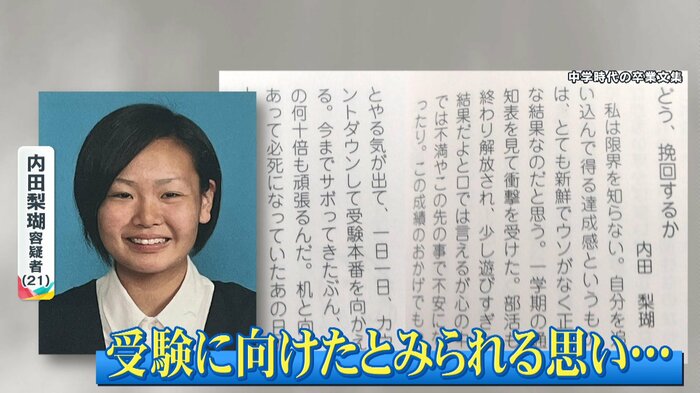 中学時代の卒業文集
どう、挽回するか
内田 梨瑚
私は限界を知らない。自分を
い込んで得る達成感というも
は、とても新鮮でウソがなく正
な結果なのだと思う。一学期の
知表を見て衝撃を受けた。部活も
終わり解放され、少し遊びすぎ
結果だよと口では言えるが心の
では不満やこの先の事で不安に
ったり。この成績のおかげでも
とやる気が出て、一日一日、カ
ントダウンして受験本番を向かえ
る。今までサボってきたぶん、
の何十倍も頑張るんだ。机と
あって必死になっていたあの日
内田梨瑚容疑者(21)
受験に向けたとみられる思い…